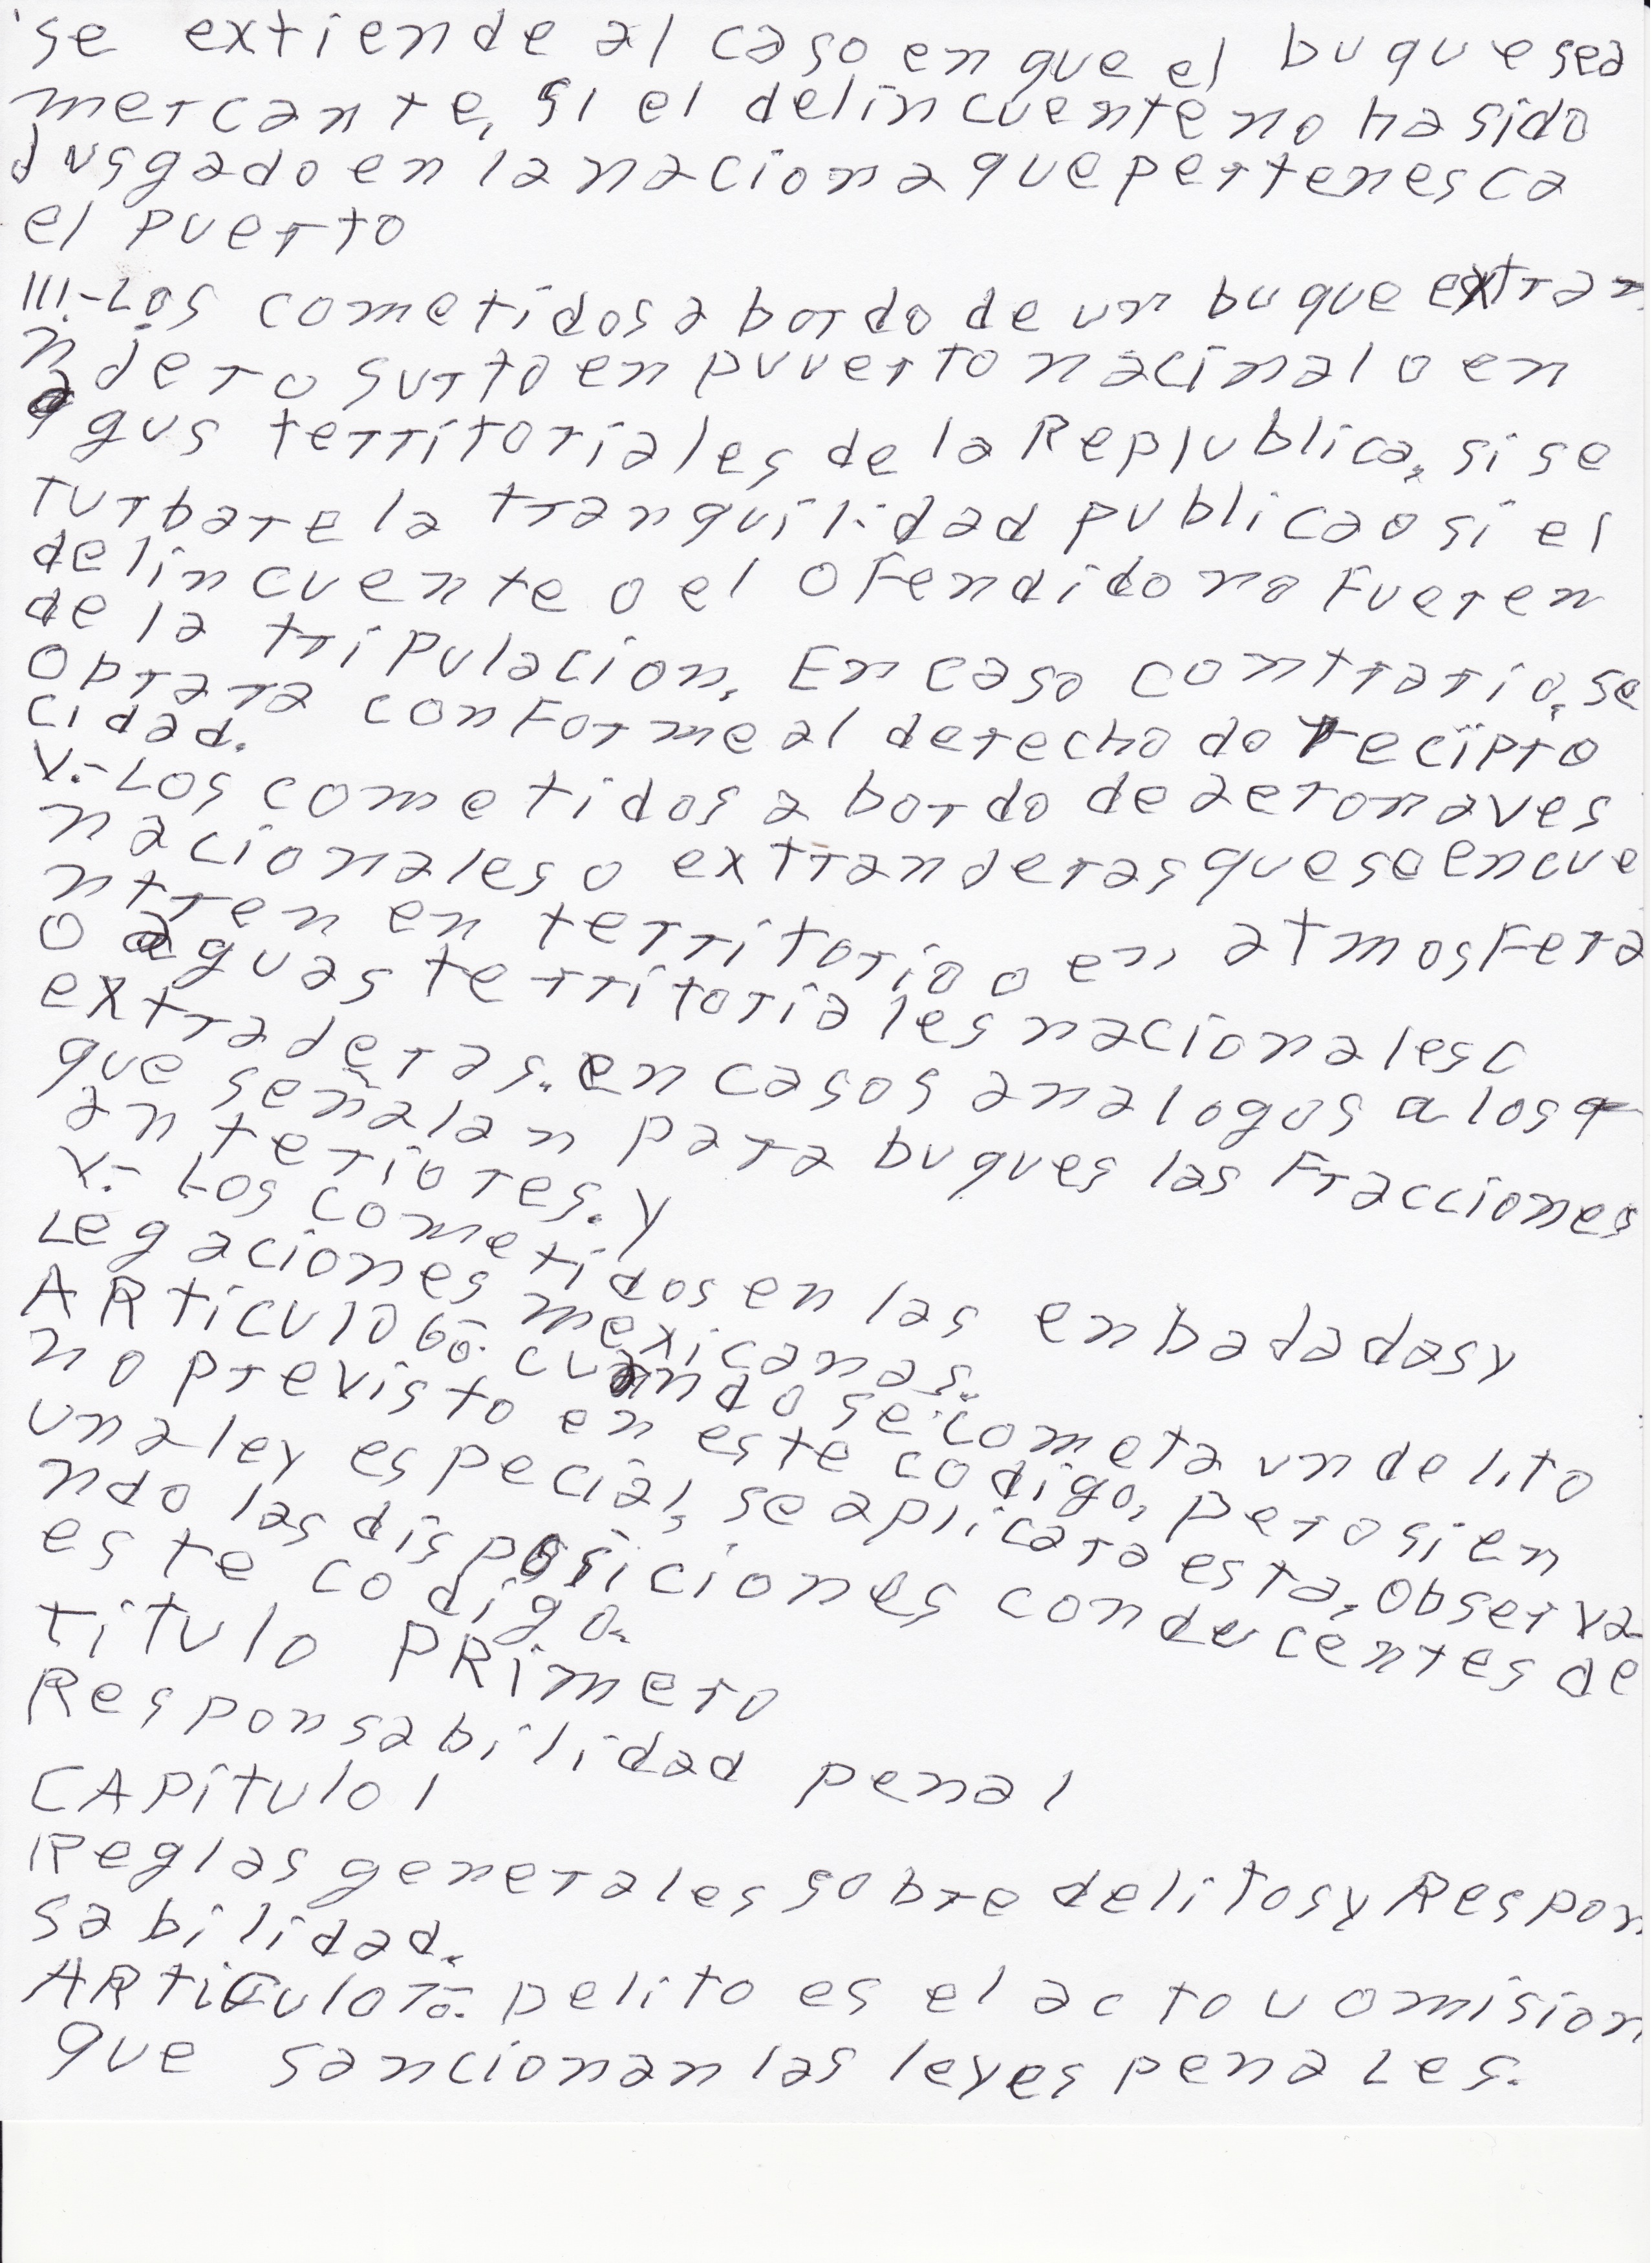 se extiende al caso en que el buque sea
mercante, si el delincuente no ha sido
dusgado en la nacion a que pertenesca
el puerto
III.-Los cometidos a bordo de un buque extran
ndero surto en puuerto nacinal o en
agus territoriales de la Replublica, si se
turbare la tranquilidad publica o si el
delincuente o el ofendido no fueren
de la tripulacion. En caso contrario, se
obrara conforme al derecho do recipro
cidad.
V.-Los cometidos a bordo de aeronaves
nacionales o extranderas que se encue
ntren en territorio o en atmosfera
o aguas territoriales nacionales o
extraderas. en casos analogos a los q
que señalan para buques las fracciones
anteriores. y
V.- Los cometidos en las enbadadas y
Legaciones mexicanas.
ARticulo 6o. cuando se cometa un delito
no previsto en este codigo, pero si en
una ley especial, se aplicara esta, observa
ndo las disposiciones conducentes de
este codigo.
titulo PRimero
Responsabilidad penal
CAPitulo I
Reglas generales sobre delitos y Respon
sabilidad.
ARticulo 7o. Delito es el acto u omision
que sancionan las leyes penaLes.